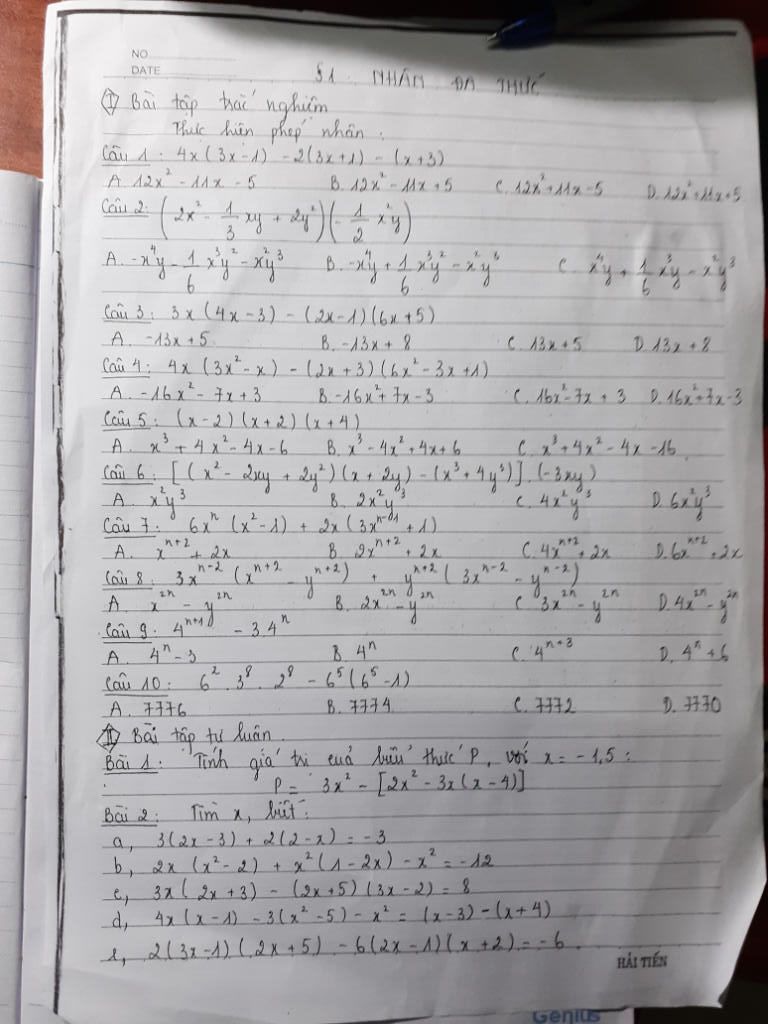 NO
DATE
§1. NHÂN ĐA THỨC
I Bài tập trắc nghiệm
Thực hiện phép nhân:
Câu 1: 4x(3x-1) - 2(3x+1) - (x+3)
A. 12x² - 11x - 5 B. 12x² - 11x + 5 C. 12x² + 11x - 5 D. 12x² + 11x + 5
Câu 2: (2x² - 1/3 xy + 2y²)(-1/2 x²y)
A. -x⁴y - 1/6 x³y² - x²y³ B. -x⁴y + 1/6 x³y² - x²y³ C. x⁴y + 1/6 x³y - x²y³
Câu 3: 3x(4x-3) - (2x-1)(6x+5)
A. -13x + 5 B. -13x + 8 C. 13x + 5 D. 13x + 8
Câu 4: 4x(3x² - x) - (2x+3)(6x² - 3x + 1)
A. -16x² - 7x + 3 B. -16x² + 7x - 3 C. 16x² - 7x + 3 D. 16x² + 7x - 3
Câu 5: (x-2)(x+2)(x+4)
A. x³ + 4x² - 4x - 6 B. x³ - 4x² + 4x + 6 C. x³ + 4x² - 4x - 16
Câu 6: [(x² - 2xy + 2y²)(x + 2y) - (x³ + 4y³)].(-3xy)
A. x²y³ B. 2x²y³ C. 4x²y³ D. 6x²y³
Câu 7: 6xⁿ(x² - 1) + 2x(3xⁿ⁻¹ + 1)
A. xⁿ⁺² + 2x B. 2xⁿ⁺² + 2x C. 4xⁿ⁺² + 2x D. 6xⁿ⁺² + 2x
Câu 8: 3xⁿ⁻²(xⁿ⁺² - yⁿ⁺²) + yⁿ⁺²(3xⁿ⁻² - yⁿ⁻²)
A. x²ⁿ - y²ⁿ B. 2x²ⁿ - y²ⁿ C. 3x²ⁿ - y²ⁿ D. 4x²ⁿ - y²ⁿ
Câu 9: 4ⁿ⁺¹ - 3.4ⁿ
A. 4ⁿ - 3 B. 4ⁿ C. 4ⁿ⁺³ D. 4ⁿ + 6
Câu 10: 6² . 3⁸ . 2⁸ - 6⁵(6⁵ - 1)
A. 7776 B. 7774 C. 7772 D. 7770
II Bài tập tự luận.
Bài 1: Tính giá trị của biểu thức P, với x = -1,5:
P = 3x² - [2x² - 3x(x - 4)]
Bài 2: Tìm x, biết:
a, 3(2x - 3) + 2(2 - x) = -3
b, 2x(x² - 2) + x²(1 - 2x) - x² = -12
c, 3x(2x + 3) - (2x + 5)(3x - 2) = 8
d, 4x(x - 1) - 3(x² - 5) - x² = (x - 3) - (x + 4)
e, 2(3x - 1)(2x + 5) - 6(2x - 1)(x + 2) = -6
HẢI TIẾN
Genius